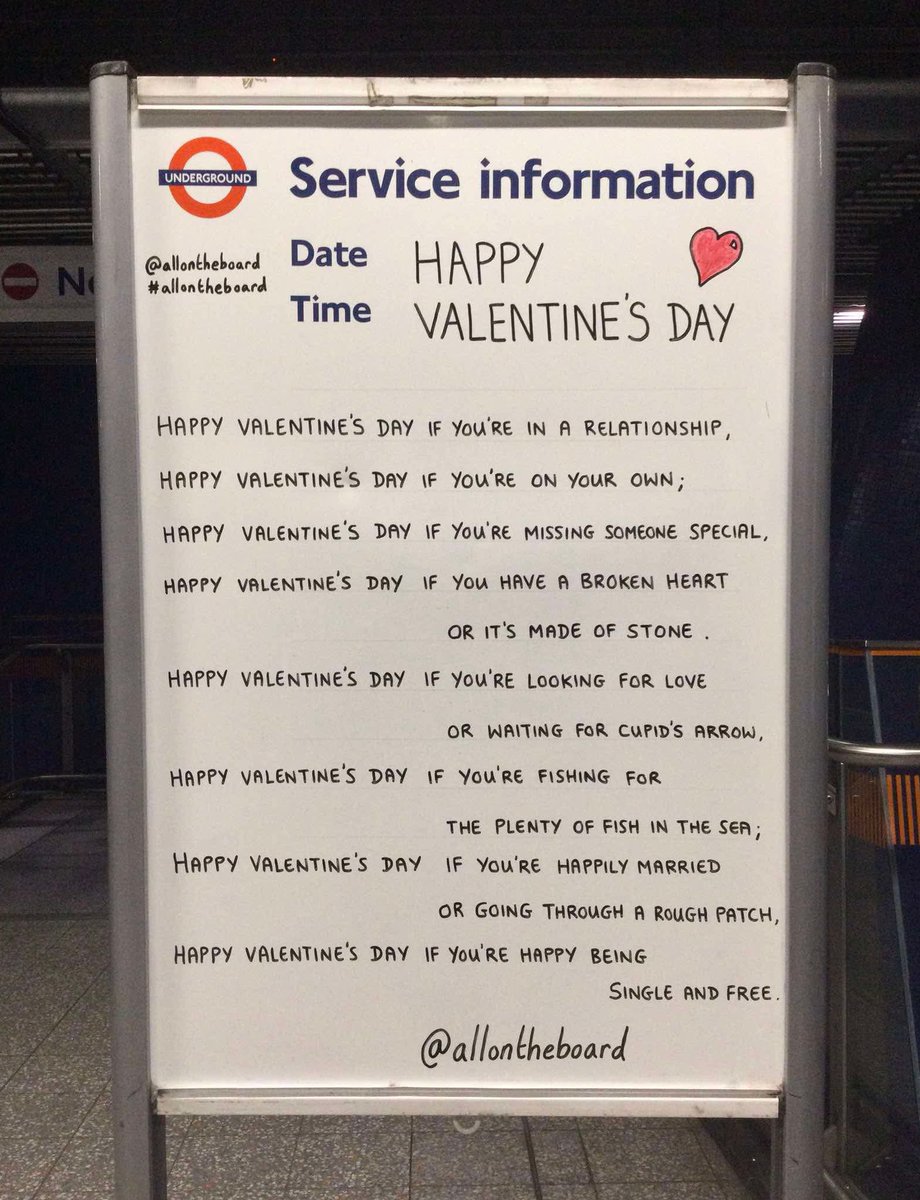 UNDERGROUND
Service information
@allontheboard
#allontheboard
Date
Time
HAPPY
VALENTINE'S DAY
No
HAPPY VALENTINE'S DAY IF YOU'RE IN A RELATIONSHIP,
HAPPY VALENTINE'S DAY IF YOU'RE ON YOUR OWN;
HAPPY VALENTINE'S DAY IF YOU'RE MISSING SOMEONE SPECIAL,
HAPPY VALENTINE'S DAY IF YOU HAVE A BROKEN HEART
OR IT'S MADE OF STONE.
HAPPY VALENTINE'S DAY IF YOU'RE LOOKING FOR LOVE
OR WAITING FOR CUPID'S ARROW,
HAPPY VALENTINE'S DAY IF YOU'RE FISHING FOR
THE PLENTY OF FISH IN THE SEA;
HAPPY VALENTINE'S DAY IF YOU'RE HAPPILY MARRIED
OR GOING THROUGH A ROUGH PATCH,
HAPPY VALENTINE'S DAY IF YOU'RE HAPPY BEING
SINGLE AND FREE.
@allontheboard